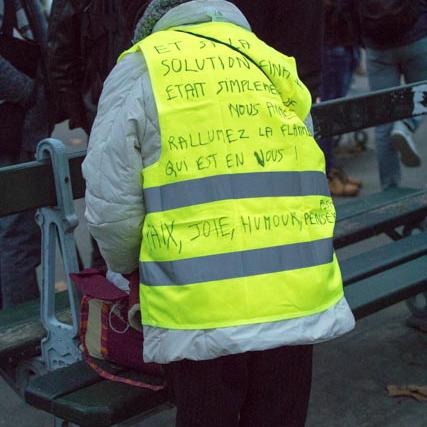 ET SI LA
SOLUTION FINALE
ETAIT SIMPLEMENT DE
NOUS AIMER
RALLUMEZ LA FLAMME
QUI EST EN VOUS !
PAIX, JOIE, HUMOUR, PENSÉES